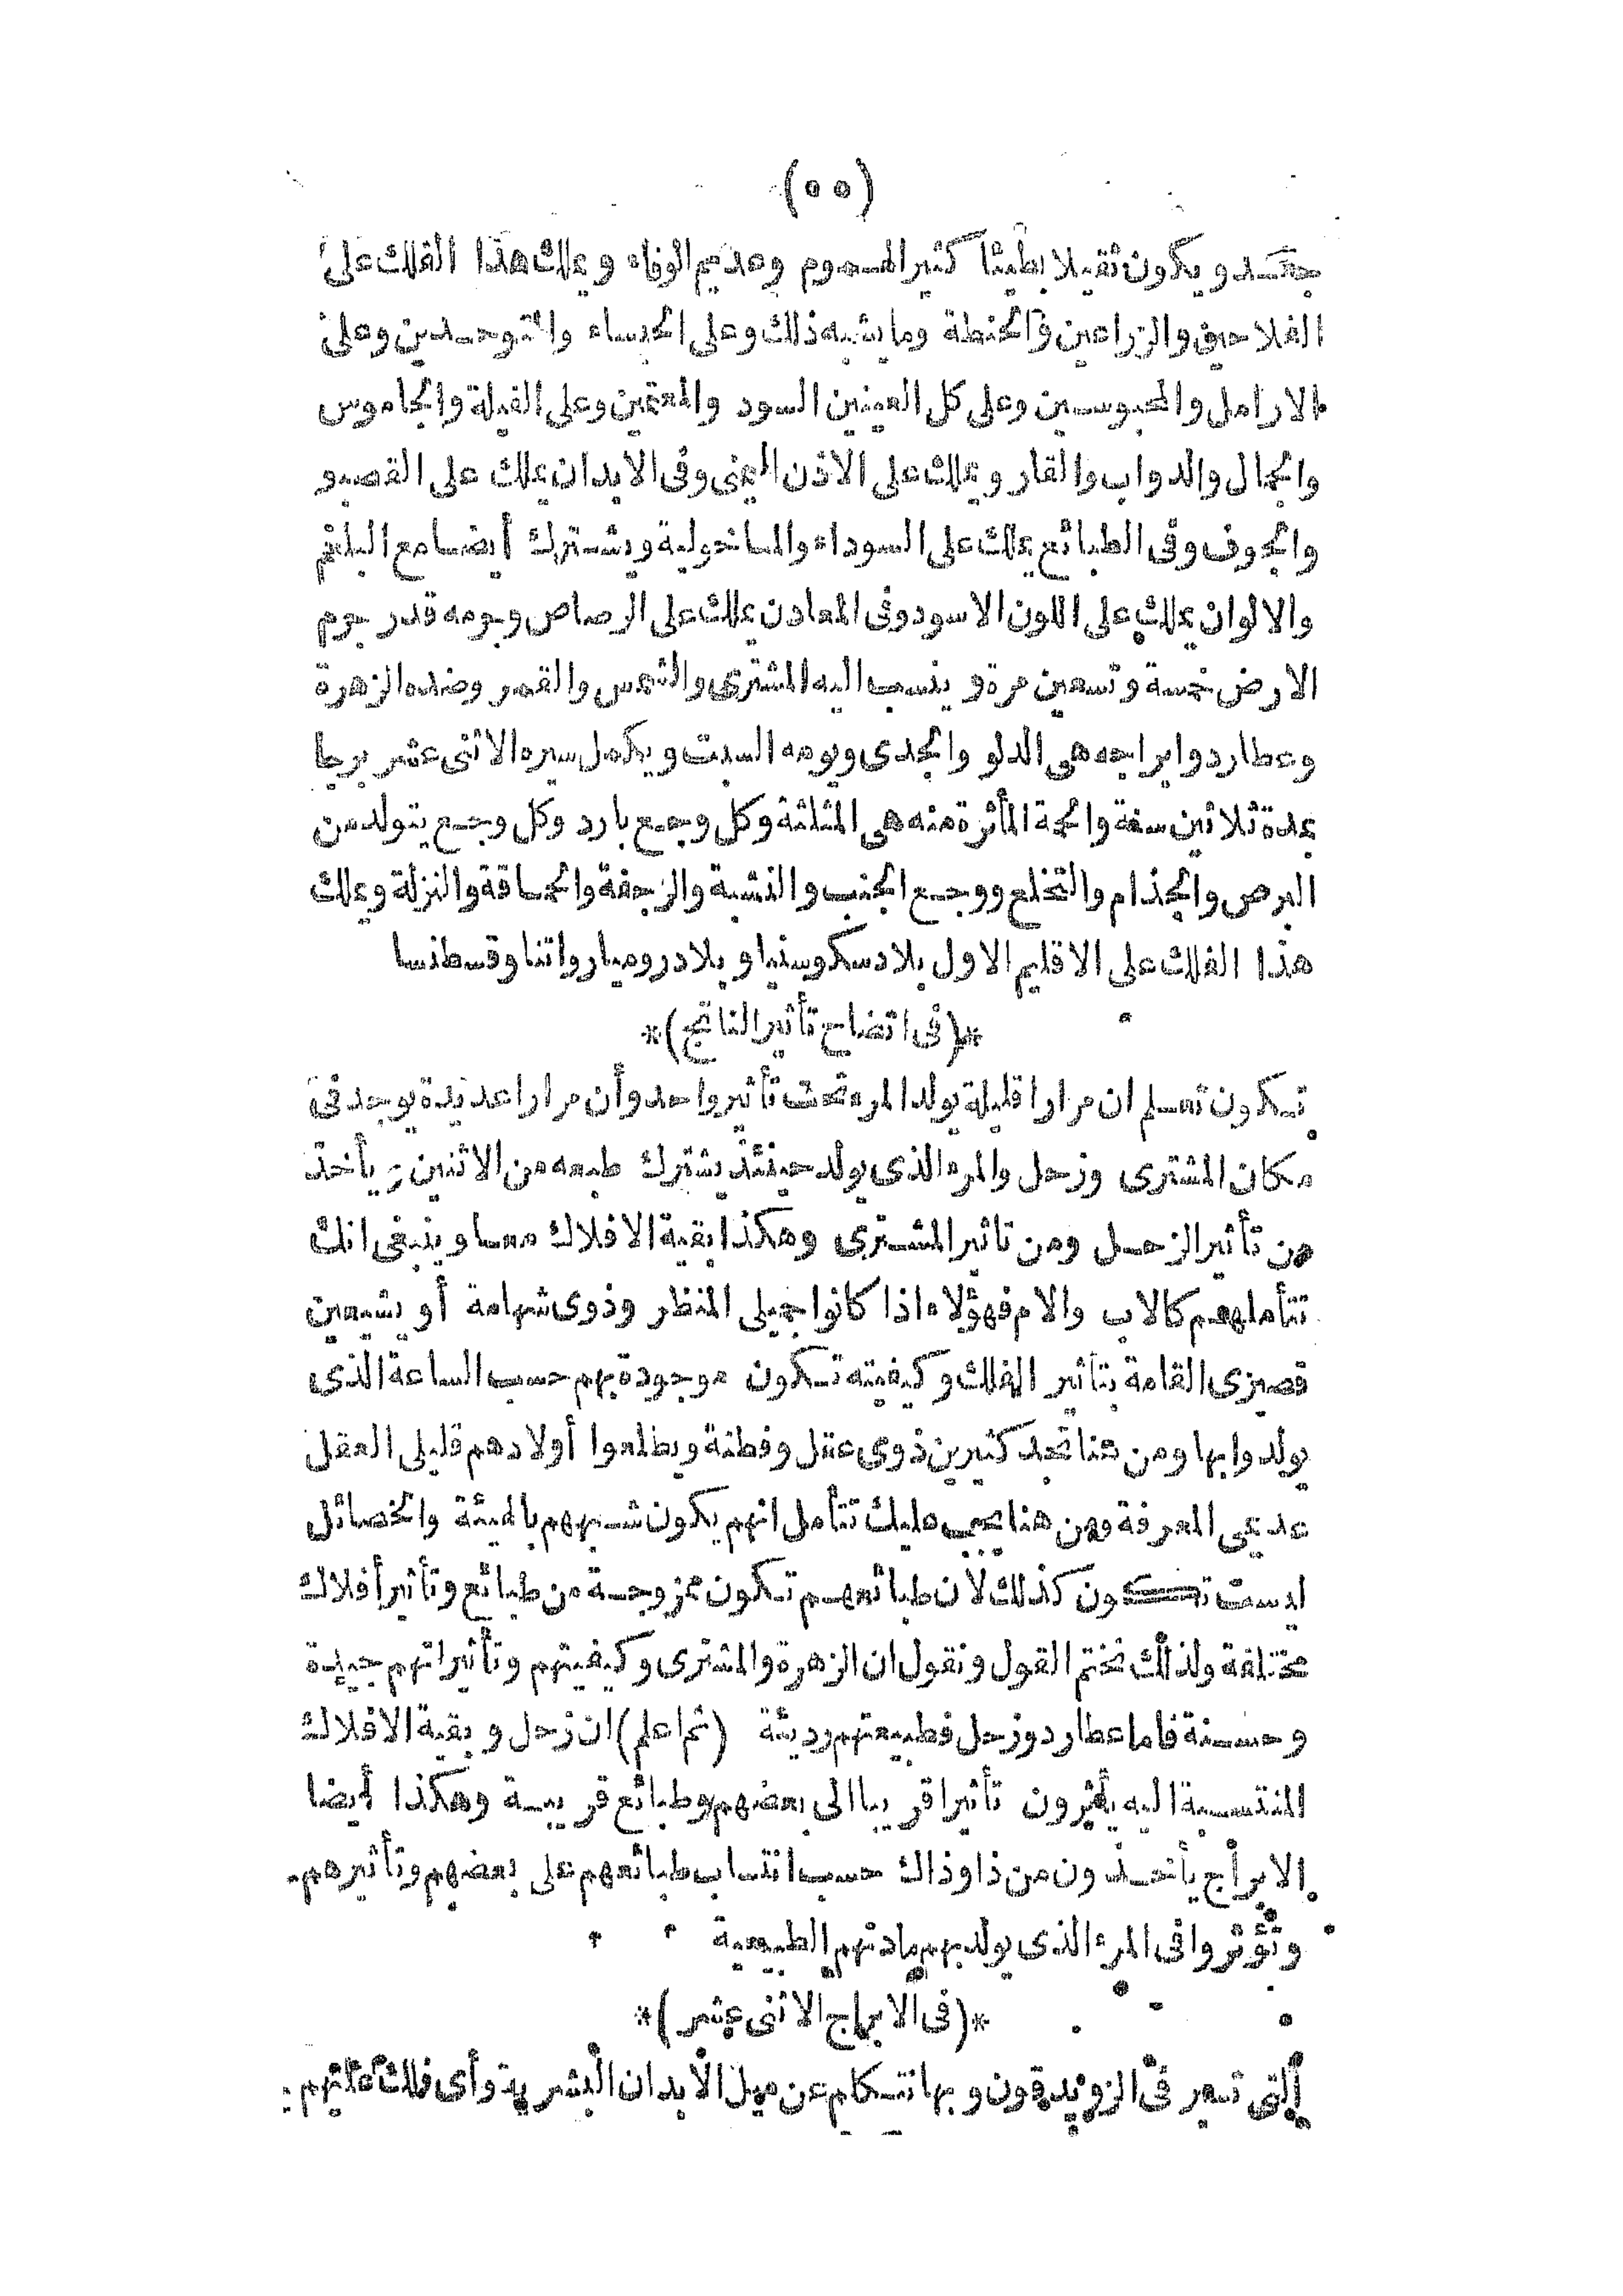 (٥٥)
جعد ويكون ثقيلا بطيئا كثير الهموم وعديم الوفاء ويملك هذا الفلك على
الفلاحين والزراعين والحنطة وما يشبه ذلك وعلى الحبساء والتوحدين وعلى
الارامل والمحبوسين وعلى كل العينين السود والمعتمين وعلى الفيلة والجاموس
والجمال والدواب والفار ويملك على الاذن اليمنى وفى الابدان يملك على القصبو
والجوف وفى الطبائع يملك على السوداء والماخولية ويشترك أيضا مع البلغم
والالوان يملك على اللون الاسود وفى المعادن يملك على الرصاص وجرمه قدر جرم
الارض خمسة وتسعين مرة وينسب اليه المشترى والشمس والقمر وضده الزهرة
وعطارد وابراجه هى الدلو والجدى ويومه السبت ويكمل سيره الاثنى عشر برجا
بمدة ثلاثين سنة والحمة المأثرة منه هى المثلثة وكل وجع بارد وكل وجع يتولد من
البرص والجذام والتخلع ووجع الجنب والنشبة والرجفة والحماقة والنزلة ويملك
هذا الفلك على الاقليم الاول بلاد سكوسنيا وبلاد روميار واتنا وقسطنسا
*(فى اتضاح تأثير الناتج)*
تكون تعلم ان مرارا قليلة يولد المرء تحت تأثير واحد وأن مرارا عديدة يوجد فى
مكان المشترى وزحل والمرء الذى يولد حينئذ يشترك طبعه من الاثنين ويأخذ
من تأثير الزحل ومن تاثير المشترى وهكذا بقية الافلاك معا وينبغى انك
تتأملهم كالاب والام فهؤلاء اذا كانوا جميلى المنظر وذوى شهامة أو بشيعين
قصيرى القامة بتأثير الفلك وكيفيته تكون موجودة بهم حسب الساعة الذى
يولدوا بها ومن هنا تجد كثيرين ذوى عقل وفطنة ويطلعوا أولادهم قليلى العقل
عديمى المعرفة ومن هنا يجب عليك تتأمل انهم يكون شبههم بالهيئة والخصائل
ليست تكون كذلك لان طبائعهم تكون ممزوجة من طبائع وتأثير أفلاك
مختلفة ولذلك نختم القول ونقول ان الزهرة والمشترى وكيفيتهم وتأثيراتهم جيدة
وحسنة فاما عطارد وزحل فطبيعتهم رديئة (ثم اعلم) ان زحل وبقية الافلاك
المنتسبة اليه يأثرون تأثيرا قريبا الى بعضهم وطبائع قريبة وهكذا أيضا
الابراج يأخذون من ذا وذاك حسب انتساب طبائعهم على بعضهم وتأثيرهم
وتؤثروا فى المرء الذى يولد بهم مادتهم الطبيعية
*(فى الابراج الاثنى عشر)*
التى تسير فى الزونديقون وبها نتكلم عن ميل الابدان البشرية وأى فلك